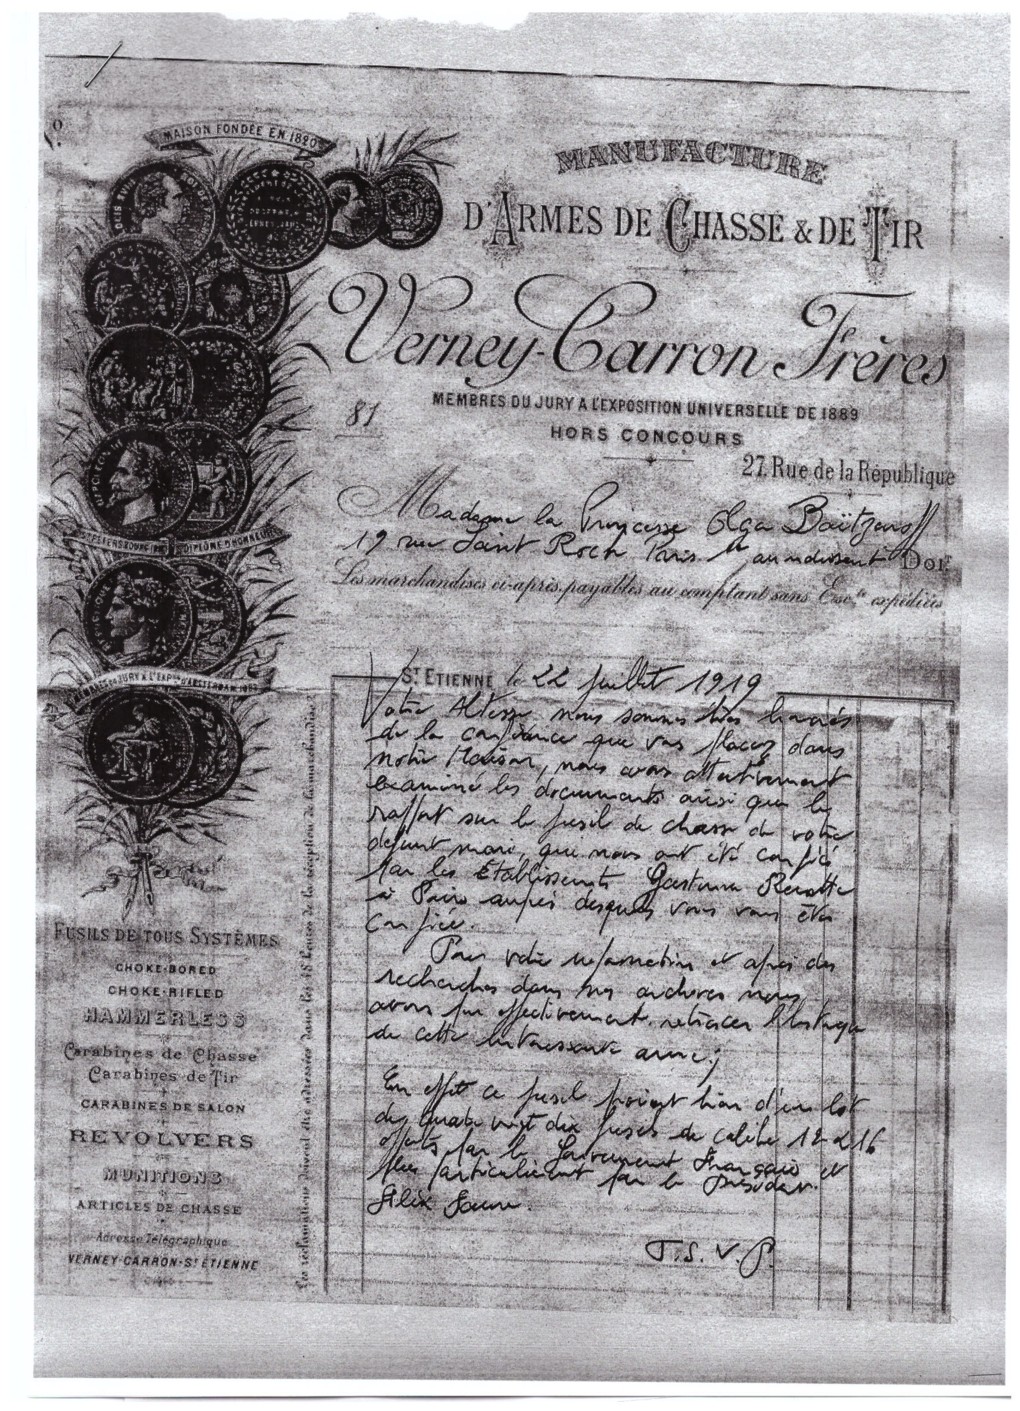 1º
MAISON FONDÉE EN 1820
MANUFACTURE
D'ARMES DE CHASSE & DE TIR
Verney-Carron Frères
MEMBRES DU JURY A L'EXPOSITION UNIVERSELLE DE 1889
HORS CONCOURS
81
27, Rue de la République
Madame la Princesse Olga
19 rue Saint Roch Paris 1er arrondissent Doit
Les marchandises ci-après, payables au comptant sans Escte expédiées
DIPLÔME D'HONNEUR
MEMBRES DU JURY A L'EXPon D'AMSTERDAM 1883
St ETIENNE le 22 juillet 1919
Votre Altesse nous sommes très honorés
de la confiance que vous placez dans
notre Maison, nous avons attentivement
examiné les documents ainsi que le
rapport sur le fusil de chasse de votre
défunt mari, que nous ont été confié
par les Etablissements Gastinne Renette
à Paris auprès desquels vous vous êtes
confiée.
Pour votre information et après des
recherches dans nos archives nous
avons pu effectivement retracer
de cette intéressante arme ;
En effet ce fusil provient bien d'un lot
de quatre vingt dix fusils de calibre 12 et 16
offerts par le Gouvernement Français et
plus particulièrement par le
Félix Faure.
T. S. V. P.
Les réclamations doivent être adressées dans les 48 heures de la réception de la marchandise
FUSILS DE TOUS SYSTÈMES
CHOKE-BORED
CHOKE-RIFLED
HAMMERLESS
Carabines de Chasse
Carabines de Tir
CARABINES DE SALON
REVOLVERS
MUNITIONS
ARTICLES DE CHASSE
Adresse Télégraphique
VERNEY-CARRON-St ÉTIENNE